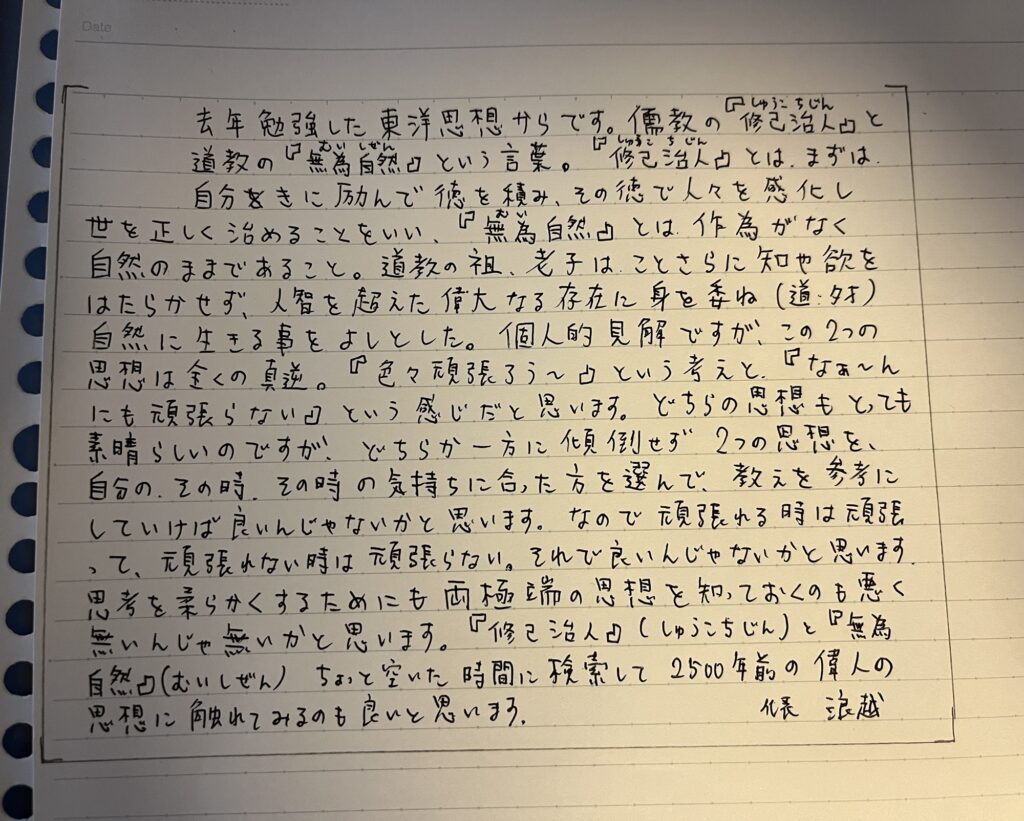 Date
去年勉強した東洋思想からです。儒教の『修己治人』と
しゅうこちじん
道教の『無為自然』という言葉。『修己治人』とは、まずは
むいしぜん しゅうこちじん
自分をきに励んで徳を積み、その徳で人々を感化し
世を正しく治めることをいい、『無為自然』とは、作為がなく
むい
自然のままであること。道教の祖、老子は、ことさらに知や欲を
はたらかせず、人智を超えた偉大なる存在に身を委ね(道:タオ)
自然に生きる事をよしとした。個人的見解ですが、この2つの
思想は全くの真逆。『色々頑張ろう〜』という考えと、『なぁ〜ん
にも頑張らない』という感じだと思います。どちらの思想もとっても
素晴らしいのですが、どちらか一方に傾倒せず2つの思想を、
自分の、その時、その時の気持ちに合った方を選んで、教えを参考に
していけば良いんじゃないかと思います。なので頑張れる時は頑張
って、頑張れない時は頑張らない。それで良いんじゃないかと思います.
思考を柔らかくするためにも両極端の思想を知っておくのも悪く
無いんじゃ無いかと思います。『修己治人』(しゅうこちじん)と『無為
自然』(むいしぜん) ちょっと空いた時間に検索して2500年前の偉人の
思想に触れてみるのも良いと思います. 代表 浪越